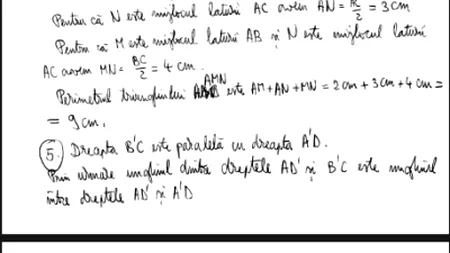 Pentru că N este mijlocul laturii AC avem AN = AC/2 = 3 cm
Pentru că M este mijlocul laturii AB și N este mijlocul laturii
AC avem MN = BC/2 = 4 cm.
Perimetrul triunghiului AMN este AM+AN+MN = 2cm + 3cm + 4cm =
= 9 cm.
5. Dreapta B'C este paralelă cu dreapta A'D.
Prin urmare unghiul dintre dreptele AD' și B'C este unghiul
între dreptele AD' și A'D